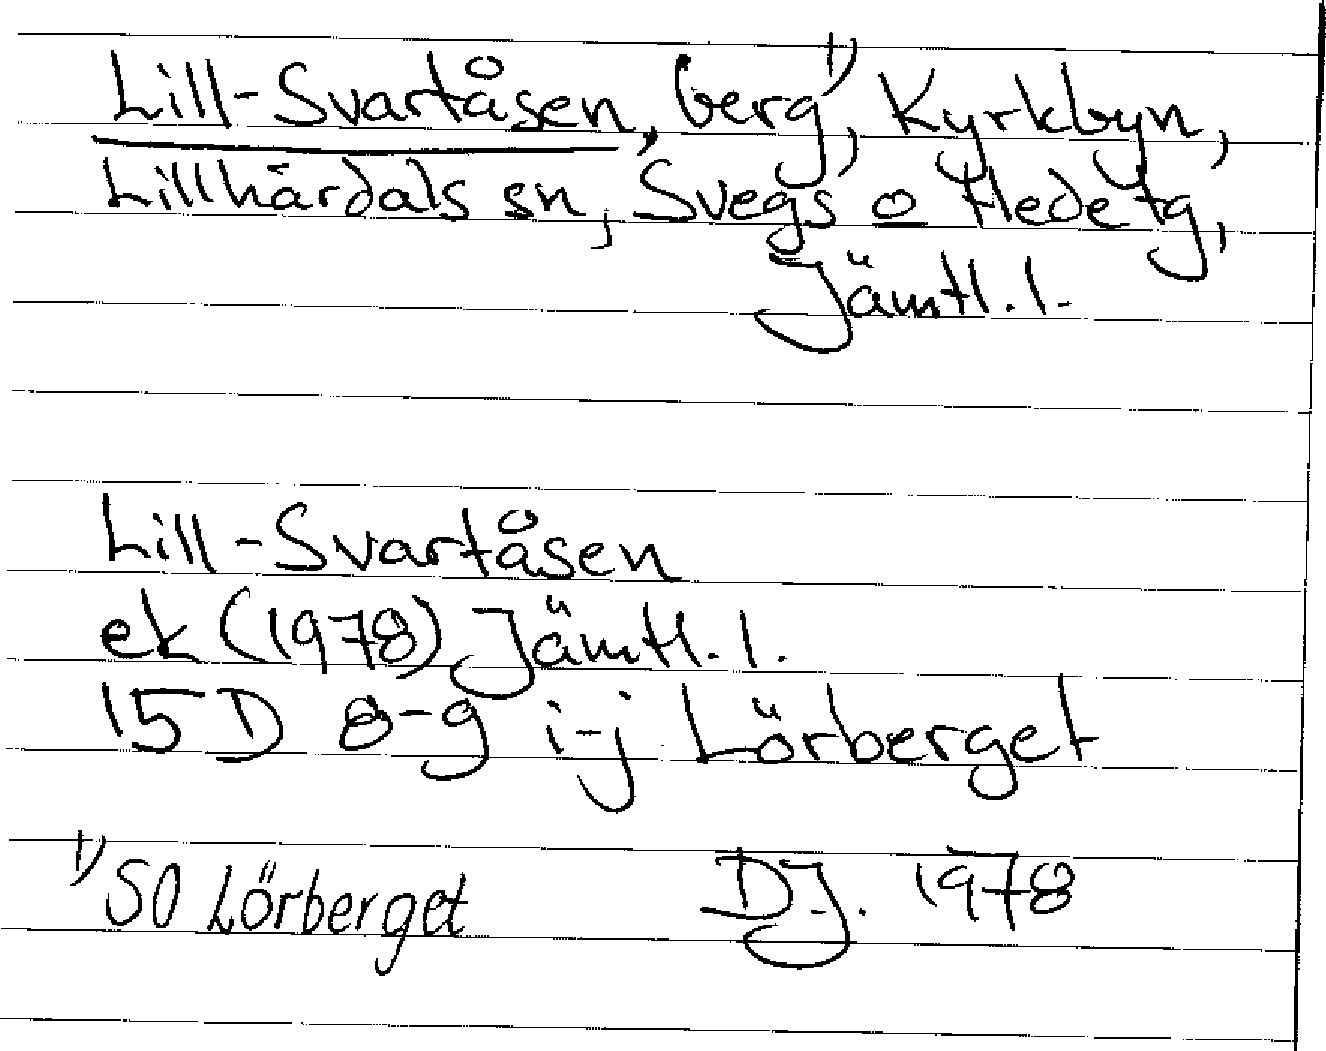 Lill-Svartåsen, berg¹⁾, Kyrkbyn,
Lillhärdals sn, Svegs o Hede tg,
Jämtl. l.
Lill-Svartåsen
ek (1978) Jämtl. l.
15D 8-9 i-j Lörberget
¹⁾ SO Lörberget D.J. 1978